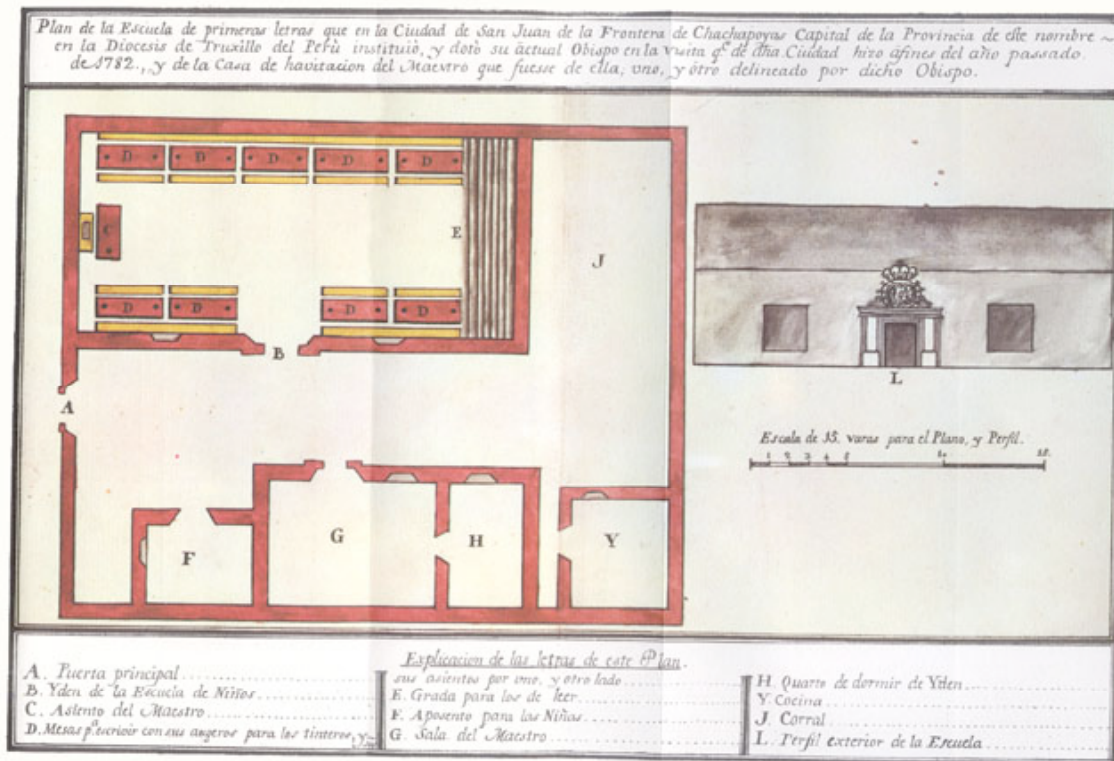 Plan de la Escuela de primeras letras que en la Ciudad de San Juan de la Frontera de Chachapoyas Capital de la Provincia de este nombre
en la Diocesis de Truxillo del Perù instituiò, y dotò su actual Obispo en la visita q.e de dha Ciudad hizo afines del año passado
de 1782., y de la Casa de havitacion del Maestro que fuesse de ella; uno, y otro delineado por dicho Obispo.
D D D D D
C
E
J
D D D D
B
A
L
Escala de 15. varas para el Plano, y Perfil.
1 2 3 4 5 10. 15.
F
G
H
Y
Explicacion de las letras de este Plan.
A. Puerta principal
B. Yden de la Escuela de Niños
C. Asiento del Maestro
D. Mesas p.a escrivir con sus augeros para los tinteros, y
sus asientos por uno, y otro lado
E. Grada para los de leer
F. Aposento para las Niñas
G. Sala del Maestro
H. Quarto de dormir de Yden
Y. Cocina
J. Corral
L. Perfil exterior de la Escuela